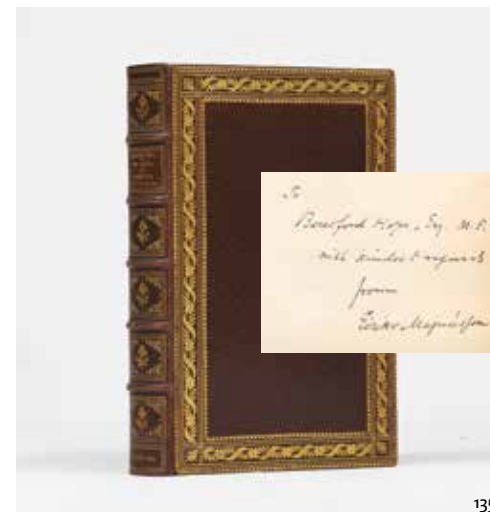 To
Beresford Hope, Esq M.P.
with kindest regards
from
Eiríkr Magnússon
135